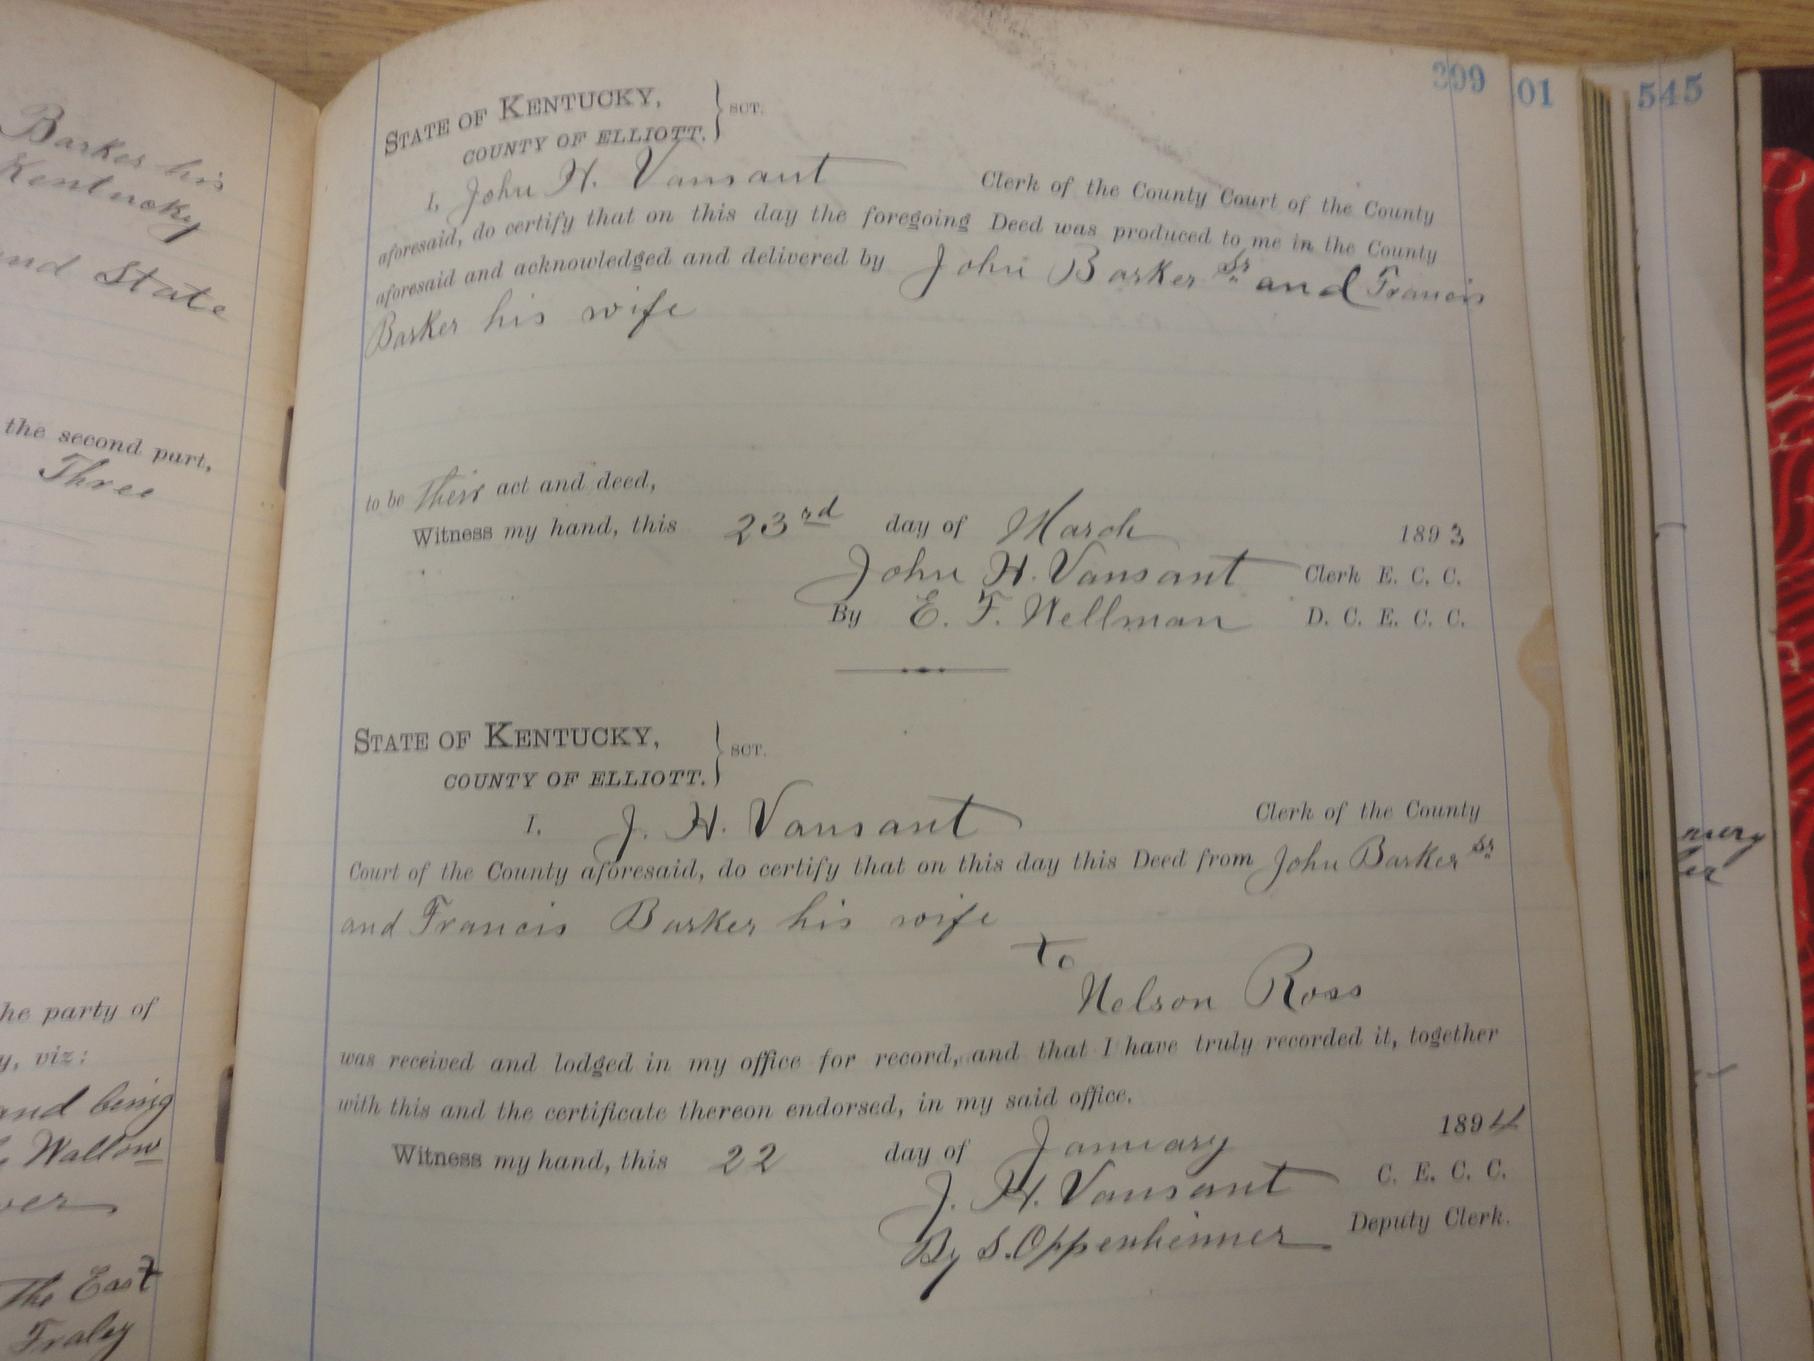 Barker his
Kentucky
and State
the second part,
Three
the party of
y, viz:
and being
Wallow
ver
The East
Fraley
399
STATE OF KENTUCKY, } SCT.
COUNTY OF ELLIOTT.
I, John H. Vansant Clerk of the County Court of the County
aforesaid, do certify that on this day the foregoing Deed was produced to me in the County
aforesaid and acknowledged and delivered by John Barker Sr and Francis
Barker his wife
to be Their act and deed,
Witness my hand, this 23rd day of March 1893
John H. Vansant Clerk E. C. C.
By E. F. Wellman D. C. E. C. C.
STATE OF KENTUCKY, } SCT.
COUNTY OF ELLIOTT.
I, J. H. Vansant Clerk of the County
Court of the County aforesaid, do certify that on this day this Deed from John Barker Sr
and Francis Barker his wife
to
Nelson Ross
was received and lodged in my office for record, and that I have truly recorded it, together
with this and the certificate thereon endorsed, in my said office.
Witness my hand, this 22 day of January 1894
J. H. Vansant C. E. C. C.
By S. Oppenheimer Deputy Clerk.
01
545